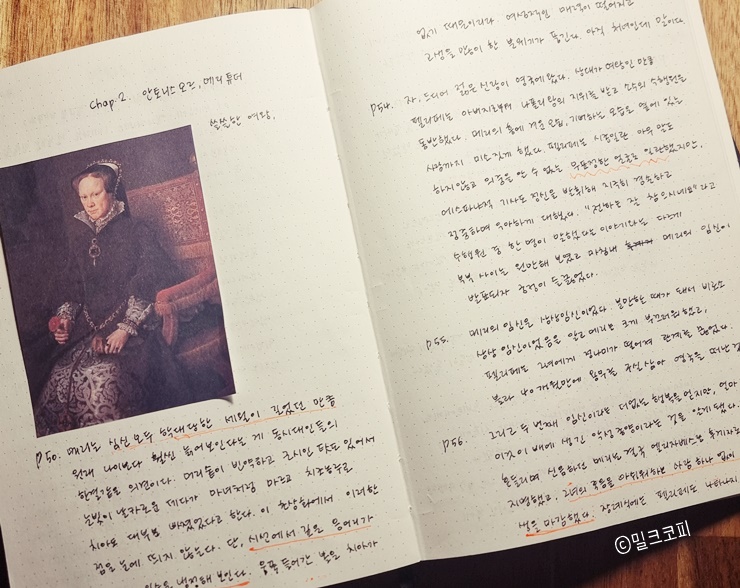 Chap.2. 안토니스 모르, 메리 튜더
쓸쓸한 여왕.
p50. 메리는 심신 모두 학대당한 세월이 길었던 만큼
원래 나이보다 훨씬 늙어보인다는 게 동시대인들의
한결같은 의견이다. 머리숱이 빈약하고 근시인 탓도 있어서
눈빛이 날카로운 데다가 마녀처럼 마르고 치조농루로
치아도 대부분 빠졌었다고 한다. 이 초상화에서 이러한
점은 눈에 띄지 않는다. 단, 시선에서 깊은 응어리가
움푹 들어간 볼은 치아가
없기 때문이리라. 여성적인 매력이 떨어지고
고생을 많이 한 분위기가 풍긴다. 아직 처녀인데 말이다.
p54. 자, 드디어 젊은 신랑이 영국에 왔다. 상대가 여왕인 만큼
펠리페는 아버지로부터 나폴리왕의 지위를 받고 소수의 수행원을
동반했다. 메리의 흥에 겨운 모습, 기뻐하는 모습은 옆에 있는
사람까지 미소짓게 했다. 펠리페는 시종일관 아무 말도
하지 않고 의중을 알 수 없는 무표정한 얼굴로 일관했지만,
에스파냐적 기사도 정신을 발휘해 지극히 겸손하고
정중하며 우아하게 대했다. "전하는 잘 참으시네요"라고
수행원 중 한 명이 말했다는 이야기와는 다르게
부부 사이는 원만해 보였고 마침내 메리의 임신이
발표되자 궁정이 들끓었다.
p55. 메리의 임신은 상상임신이었다. 불만한 때가 돼서 비로소
상상임신이었음을 알고 메리는 크게 부끄러워했고,
펠리페는 그녀에게 정나미가 떨어져 관계를 끊었다.
불과 10개월만에 용무를 구실삼아 영국을 떠난
p56. 그리고 두 번째 임신이라는 더없는 행복을 얻지만, 얼마
이것이 배에 생긴 악성종양이라는 것을 알게 됐다.
흔들리며 신음하던 메리는 결국 엘리자베스를 후계자로
지명했고, 그녀의 죽음을 아쉬워하는 사람 하나 없이
생을 마감했다. 장례식에는 펠리페도 나타나지
©밀크코피